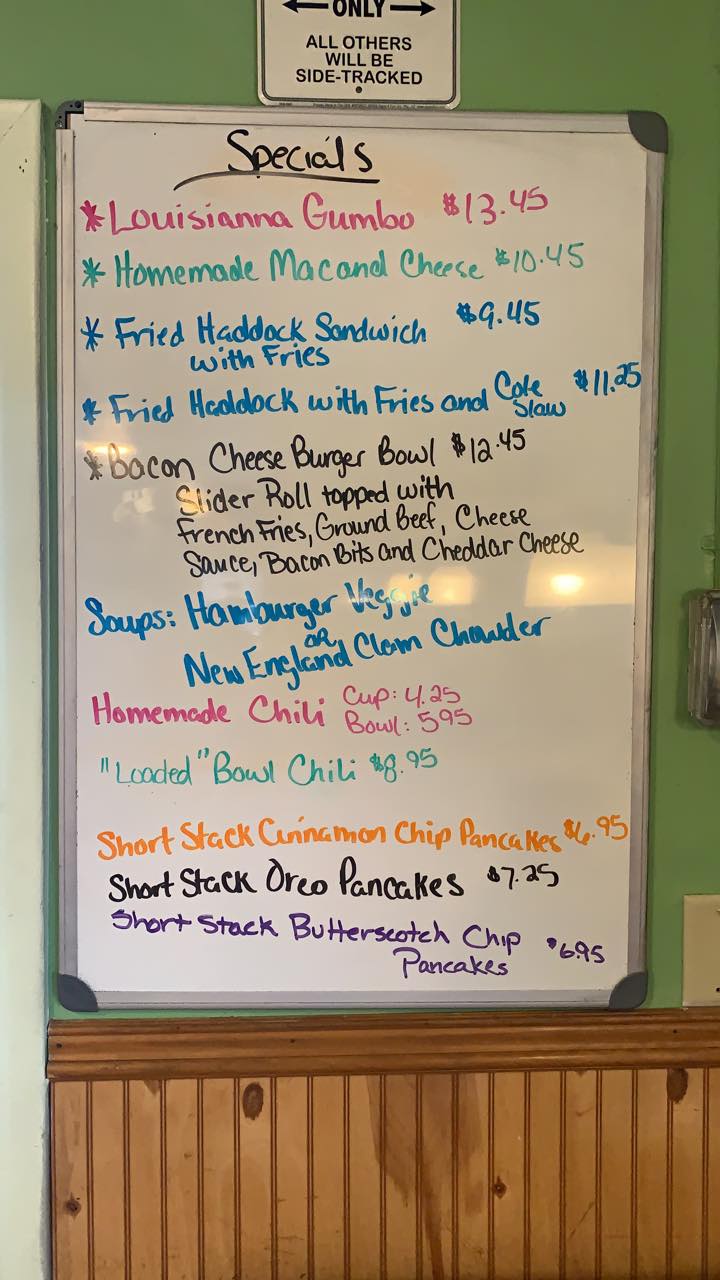 ONLY
ALL OTHERS
WILL BE
SIDE-TRACKED
Specials
* Louisianna Gumbo $13.45
* Homemade Mac and Cheese $10.45
* Fried Haddock Sandwich $9.45
with Fries
* Fried Haddock with Fries and Cole Slaw $11.25
* Bacon Cheese Burger Bowl $12.45
Slider Roll topped with
French Fries, Ground Beef, Cheese
Sauce, Bacon Bits and Cheddar Cheese
Soups: Hamburger Veggie
OR
New England Clam Chowder
Homemade Chili Cup: 4.25
Bowl: 595
"Loaded" Bowl Chili $8.95
Short Stack Cinnamon Chip Pancakes $6.95
Short Stack Oreo Pancakes $7.25
Short Stack Butterscotch Chip
Pancakes $6.95